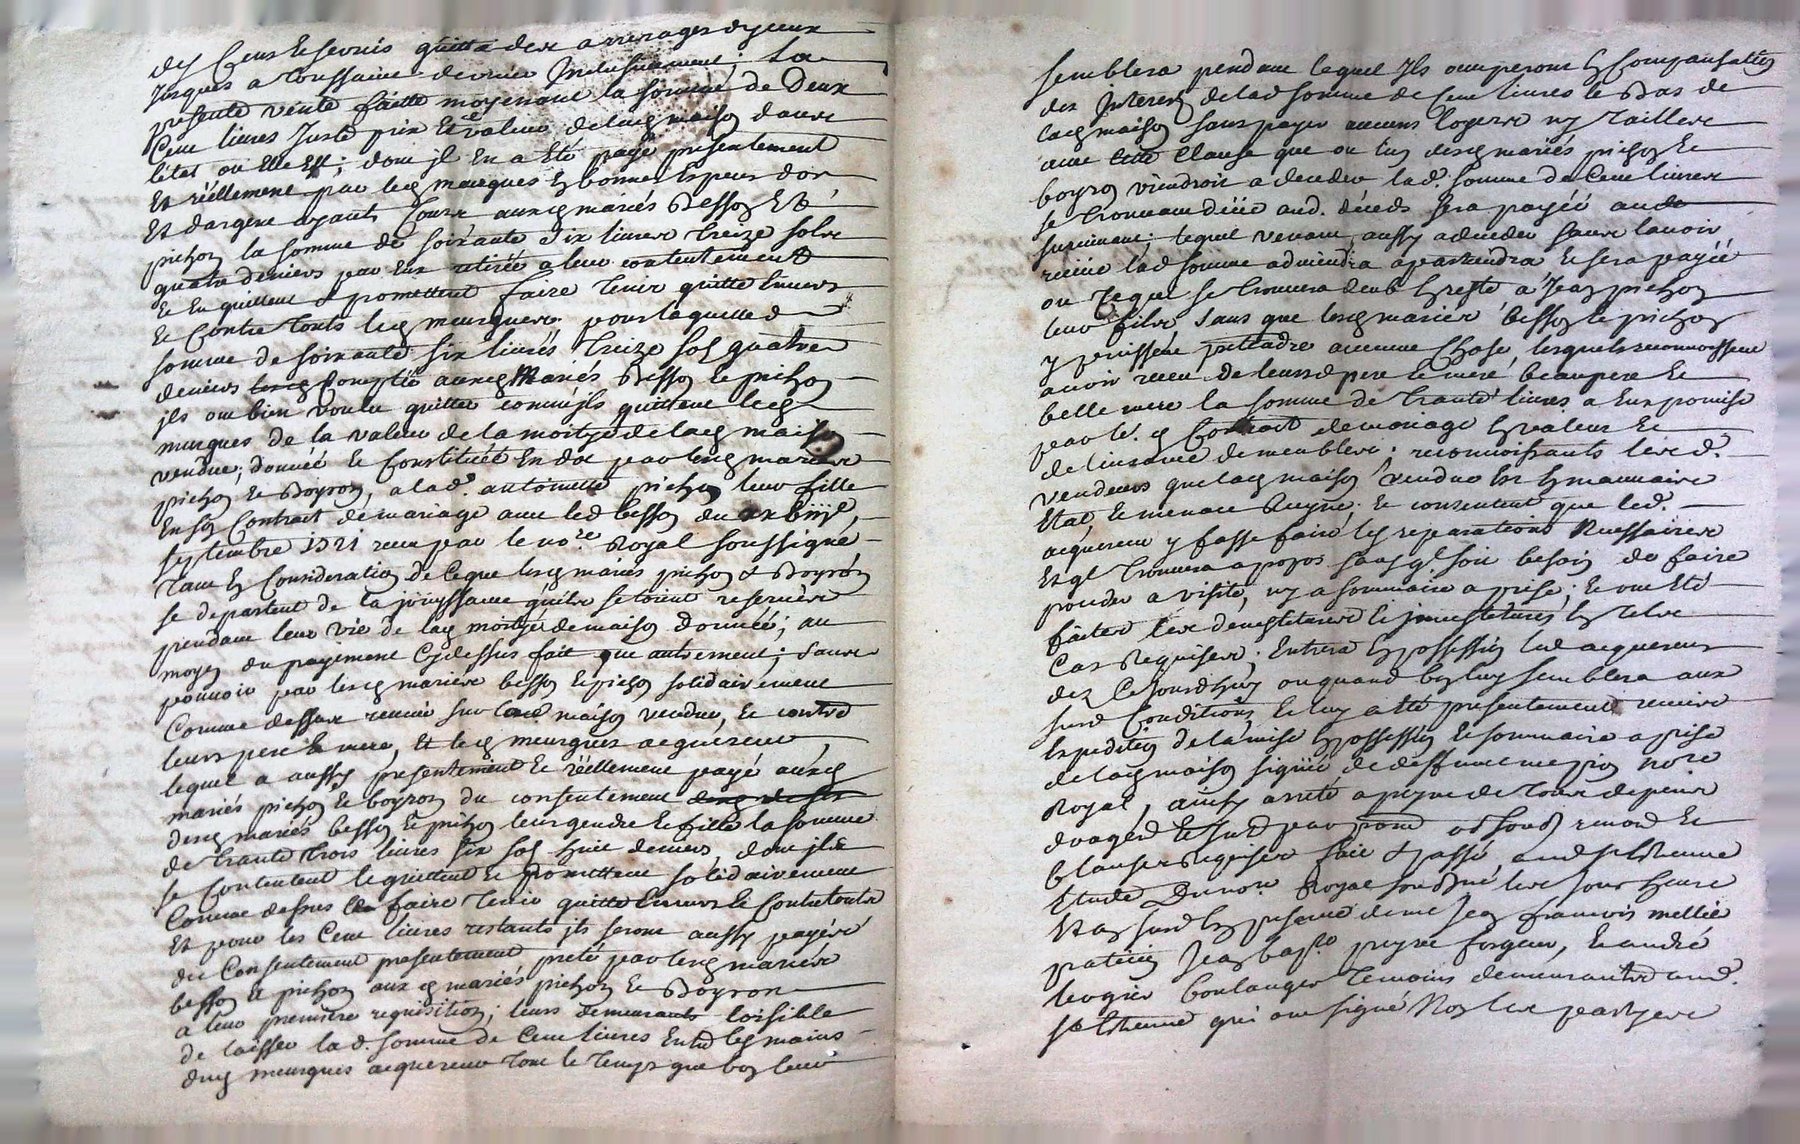 des Cens et servis quitte des arrerages d'yceux
Jusques a toussaints dernier Inclusivement; La
presente vente faitte moyenant la somme de Deux
Cent livres Juste prix et valeur de lad maison dans
letat ou Elle Est; dont jl En a Eté payé presentement
Et réellement par led meurgues En bonnes Especes d'or
Et d'argent ayants Cours auxd mariés Besson Et
pichon la somme de soixante Six livres treize sols
quatre deniers par Eux retirée a leur contentement
Et En quittent & promettent faire tenir quitte Envers
Et Contre touts led meurgues. pour laquelle d
somme de soixante six livres treize sols quatre
deniers Comptée auxd Mariés Besson et pichon
jls ont bien voulu quitter comme jls quittent led
murgues de la valeur de la moityé de lad maison
vendue; donnée et Constituée En dot par lesd mariés
pichon et Boyron, a lad. antoinette pichon leur fille
En son Contrat de mariage avec led besson du
septembre 1721 receu par le no.re Royal soussigné
tant En Consideration de ce que lesd mariés pichon & Boyron
se departent de la jouyssance qu'ils se toient reservée
pendant leur vie de lad moityé de maison donnée; au
moyen du payement Cydessus fait que autrement; Sauve
pouvoir par lesd mariés besson et pichon solidairement
Comme dessus revenir sur lad maison vendue, et contre
leurs pere & mere, Et led meurgues acquereur,
lequel a aussy presentement et réellement payé auxd
mariés pichon et boyron du consentement
desd mariés besson et pichon leurs gendre et fille la somme
de trante trois livres six sols huit deniers, dont jls
se Contentent le quittent et promettent solidairement
Comme dessus faire tenir quitte Envers et Contre touts
Et pour les Cent livres restants jls seront aussy payés
du Consentement presentement preté par lesd mariés
besson et pichon auxd mariés pichon et Boyron
a leur premiere requisition; leurs demeurants loisible
de laisser lad. somme de Cent livres Entre les mains
dud meurgues acquereur tout le temps que bon leur
semblera pendant lequel Jls occuperont En Compensation
des Interets de lad somme de Cent livres le Bas de
lad maison sans payer aucuns loyers ny tailles
avec cette Clause que ou l'un desd mariés pichon et
boyron viendroit a deceder lad. somme de Cent livres
se trouvant due aud. décéds sera payée au
survivant; lequel venant aussy a deceder sans l'avoir
receue lad somme adviendra apartiendra et sera payée
ou ce que se trouvera deub En reste a Jean pichon
leur fils, sans que lesd mariés besson et pichon
y puissent pretendre aucune Chose, lesquels reconnoissent
avoir receu de leursd pere et mere beaupere et
belle mere la somme de trante livres a Eux promise
par led Contrat de mariage En valeur et
delivrance de meubles; reconnoissants lesd.
vendeurs que lad maison vendue Est En mauvais
Etat, Et menace Ruyne; Et consentent que led.
acquereur y fasse faire les reparations Necessaires
Et qt trouvera apropos sans qt soit besoin de faire
proceder a visite, ny a sommaire aprise; Et ont Eté
faites les devestitures et jnvestitures En tels
Cas Requises; Entrera En possession led acquereur
dez Cejourdhuy ou quand bon luy semblera aux
susd Conditions, Et luy a Eté presentement remise
Expedition de la mise En possession et sommaire aprise
de lad maison signée de deffunt me pion no.re
Royal, ainsy arreté a peyne de tous depens
domages Et Sur
Clauses Requises fait & passé, aud st Etienne
Etude Du no.re Royal sous Sné les Jour heure
Et an susd En presence de me Jean francois mellié
praticien Jean bap.te peyre forgeur, Et andré
bogier boulanger temoins demeurants aud.
st Etienne qui ont signé Non les partyes